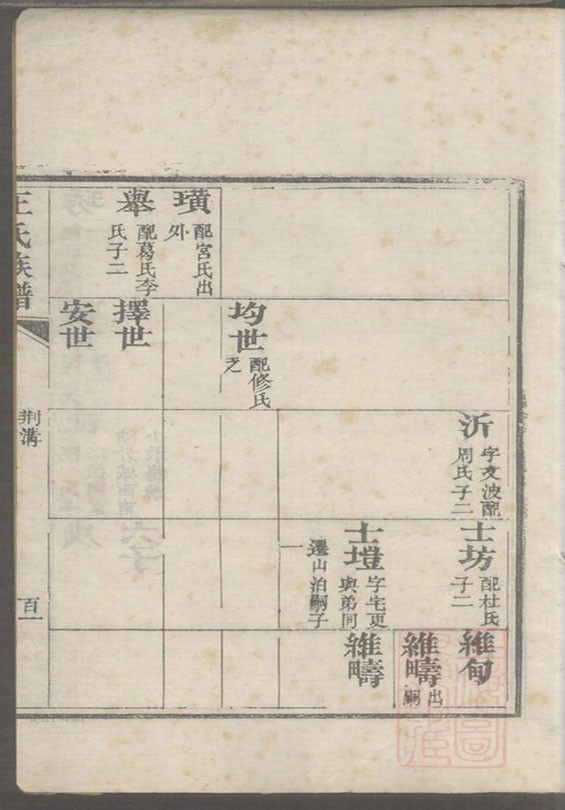 沂
字文波配
周氏子二
士坊
配杜氏
子二
維甸
維疇
出
嗣
士塏
字宅更
與弟同
遷山泊嗣子
一
維疇
均世
配修氏
乏
璜
配宮氏出
外
舉
配葛氏李
氏子二
擇世
安世
王氏族譜
荆溝
百一